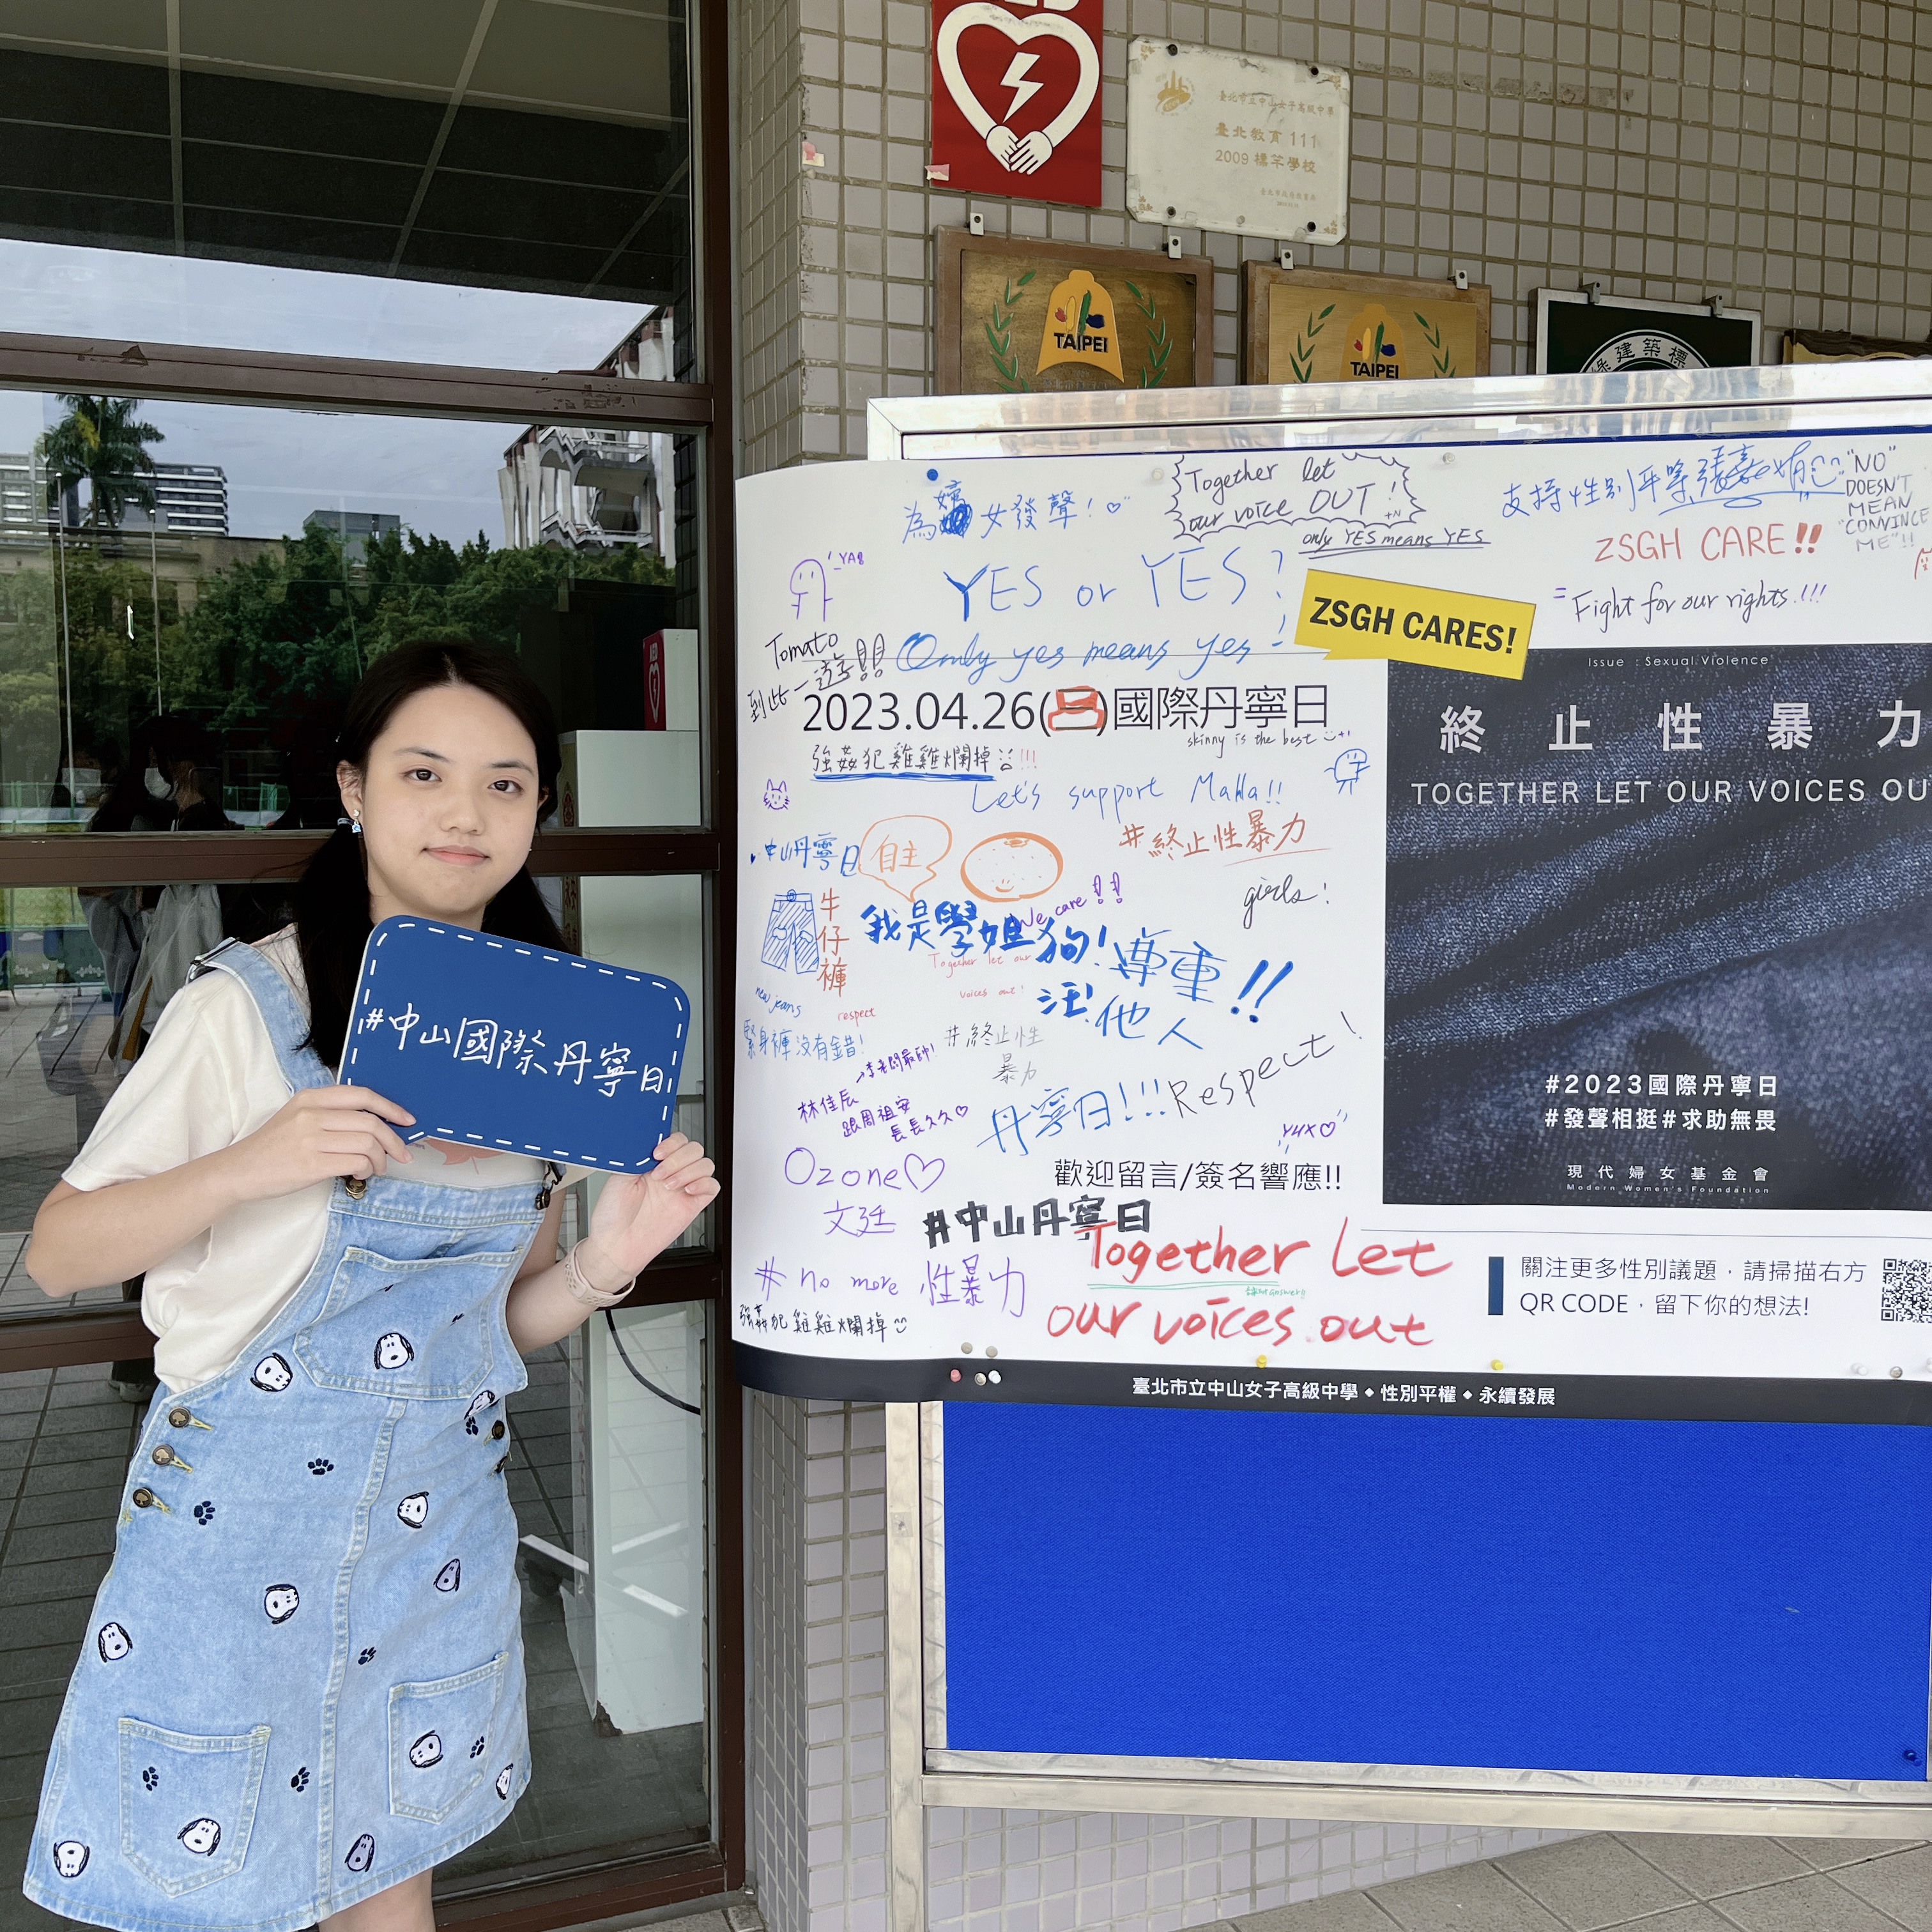 臺北市立中山女子高級中學
臺北教育 111
2009 標竿學校
TAIPEI
TAIPEI
綠建築標
為婦女發聲！
Together let
our voice OUT !
+N
only YES means YES
支持性別平等
"NO"
DOESN'T
MEAN
"CONVINCE
ME"!!
ZSGH CARE!!
= Fight for our rights!!!
YA8
YES or YES?
ZSGH CARES!
Tomato
到此一遊!!
Only yes means yes!
2023.04.26(三)國際丹寧日
skinny is the best
強姦犯雞雞爛掉!!!
Let's support
#終止性暴力
中山丹寧日
自主
girls!
牛仔褲
We care!!
我是學姐狗!
汪!
Together let our
voices out!
尊重
他人!!
new jeans
respect
緊身褲沒有錯!
#終止性
暴力
林佳辰
跟周祖安
長長久久♡
丹寧日!!!
Respect!
YUX♡
Ozone♡
文廷
歡迎留言/簽名響應!!
#中山丹寧日
Together let
our voices out
# no more 性暴力
強姦犯雞雞爛掉
Issue : Sexual Violence
終止性暴力
TOGETHER LET OUR VOICES OU
#2023國際丹寧日
#發聲相挺#求助無畏
現代婦女基金會
Modern Women's Foundation
關注更多性別議題，請掃描右方
QR CODE，留下你的想法!
臺北市立中山女子高級中學 ◆ 性別平權 ◆ 永續發展
#中山國際丹寧日